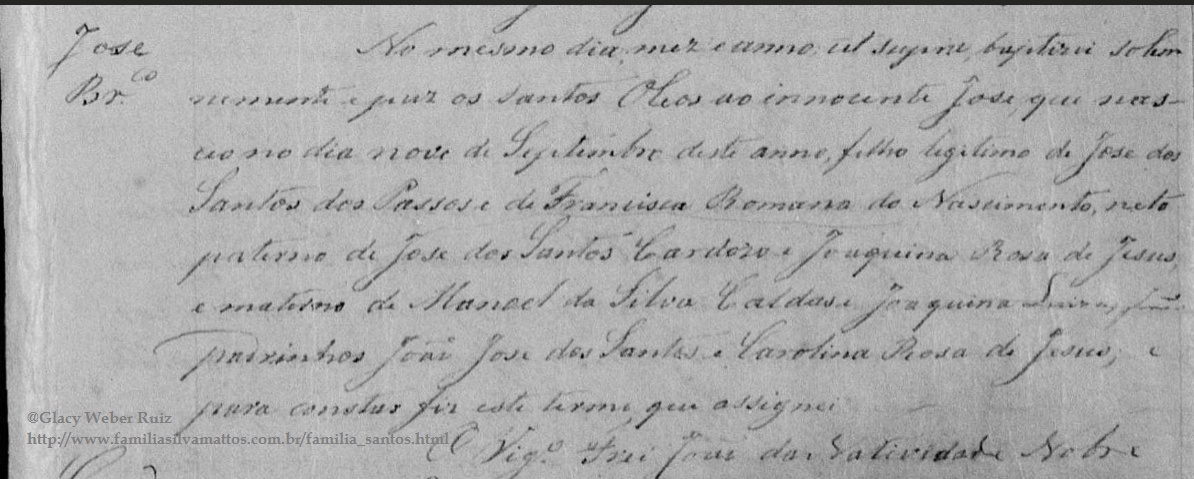 Jose
Br.co
No mesmo dia, mez e anno ut supra, baptizei solem
nemente e puz os santos Oleos ao innocente Jose, que nas-
ceo no dia nove de Septembro deste anno, filho legitimo de Jose dos
Santos dos Passos e de Francisca Romana do Nascimento, neto
paterno de Jose dos Santos Cardozo e Joaquina Rosa de Jesus,
e materno de Manoel da Silva Caldas e Joaquina
padrinhos João Jose dos Santos e Carolina Rosa de Jesus, e
para constar fiz este termo, que assignei
O Vigo. Frei João da Natividade Nobre
@Glacy Weber Ruiz
http://www.familiasilvamattos.com.br/familia_santos.html